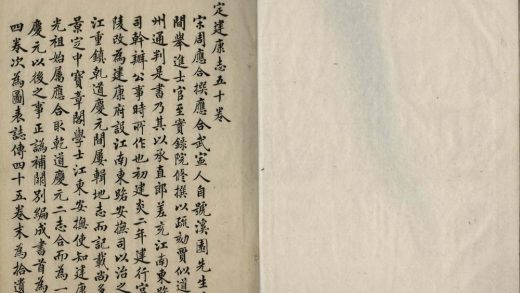 定建康志五十卷
宋周應合撰應合武寧人自號溪園先生
間舉進士官至實錄院修撰以疏劾賈似道
州通判是書乃其以承直郎差充江南東路
司幹辦公事時所作也初建炎二年建行宮
陵改為建康府設江南東路安撫司以治之
江重鎮乾道慶元間屢輯地志而記載尚多
景定中寶章閣學士江東安撫使知建康
光祖始屬應合取乾道慶元二志合而為一
慶元以後之事正譌補闕別編成書首為
四卷次為圖表誌傳四十五卷末為拾遺